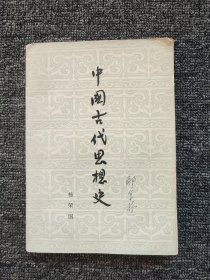 中国古代思想史
杨荣国